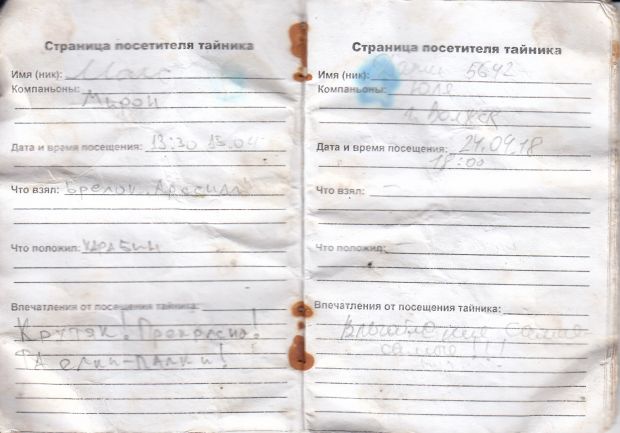 Страница посетителя тайника
Имя (ник): Макс
Компаньоны:
Мирон
Дата и время посещения: 13:30 13.04
Что взял: Брелок
Что положил: КАРАБИН
Впечатления от посещения тайника:
Крутяк! Прекрасно!
ёлки-палки!
Страница посетителя тайника
Имя (ник): 5642
Компаньоны: Юля
г. Волжск
Дата и время посещения: 24.04.18
18:00
Что взял:
Что положил:
Впечатления от посещения тайника:
самые
самые!!!